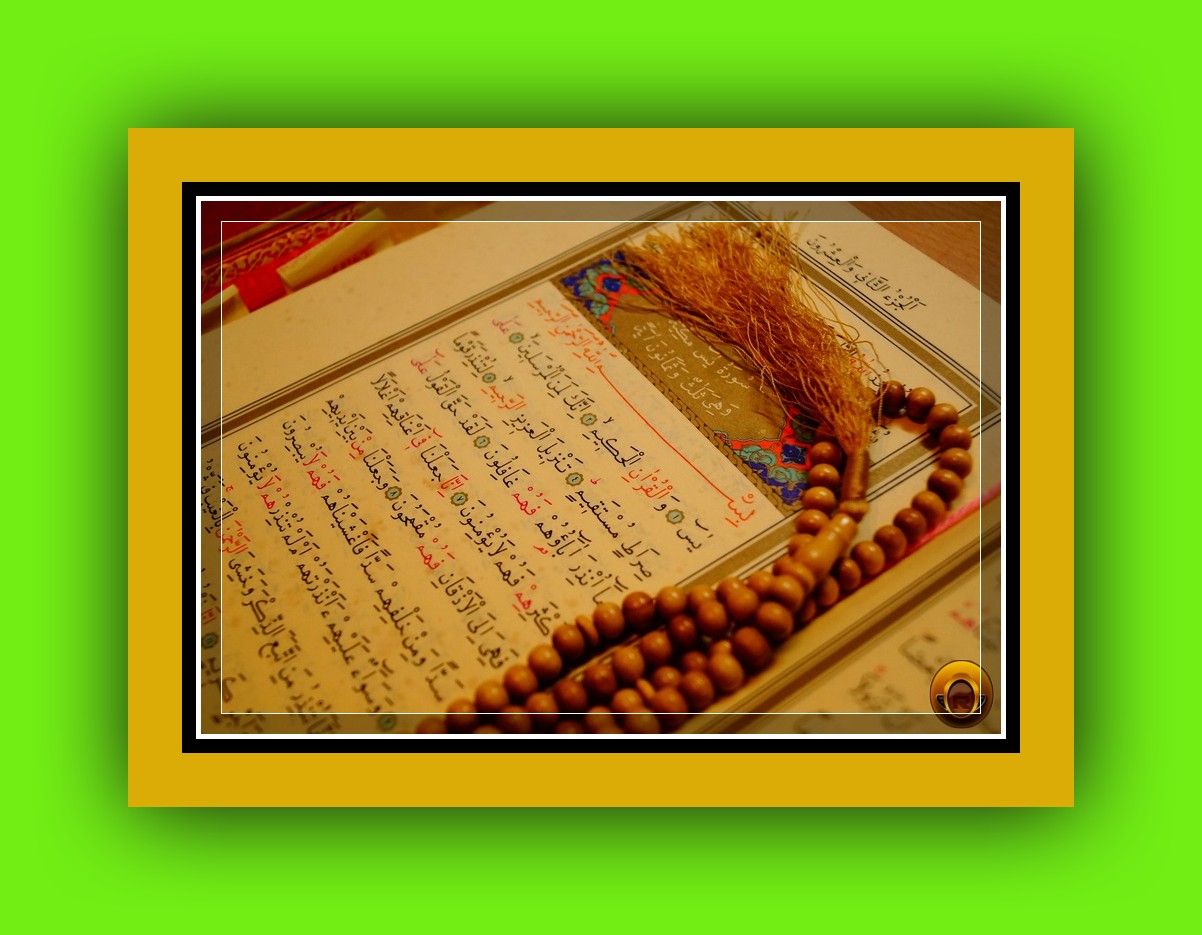 اَلْجُزْءُ الثَّانِي وَالْعِشْرُونَ
سورة يس مكية
وهي ثلاث وثمانون آية
يسٓ وَالْقُرْاٰنِ الْحَكٖيمِ اِنَّكَ لَمِنَ الْمُرْسَلٖينَ عَلٰى
صِرَاطٍ مُسْتَقٖيمٍ تَنْزٖيلَ الْعَزٖيزِ الرَّحٖيمِ لِتُنْذِرَ قَوْمًا
مَا اُنْذِرَ اٰبَاؤُهُمْ فَهُمْ غَافِلُونَ لَقَدْ حَقَّ الْقَوْلُ عَلٰى
اَكْثَرِهِمْ فَهُمْ لَا يُؤْمِنُونَ اِنَّا جَعَلْنَا فٖى اَعْنَاقِهِمْ اَغْلَالًا
فَهِىَ اِلَى الْاَذْقَانِ فَهُمْ مُقْمَحُونَ وَجَعَلْنَا مِنْ بَيْنِ اَيْدٖيهِمْ
سَدًّا وَمِنْ خَلْفِهِمْ سَدًّا فَاَغْشَيْنَاهُمْ فَهُمْ لَا يُبْصِرُونَ
وَسَوَاءٌ عَلَيْهِمْ ءَاَنْذَرْتَهُمْ اَمْ لَمْ تُنْذِرْهُمْ لَا يُؤْمِنُونَ
اِنَّمَا تُنْذِرُ مَنِ اتَّبَعَ الذِّكْرَ وَخَشِىَ الرَّحْمٰنَ